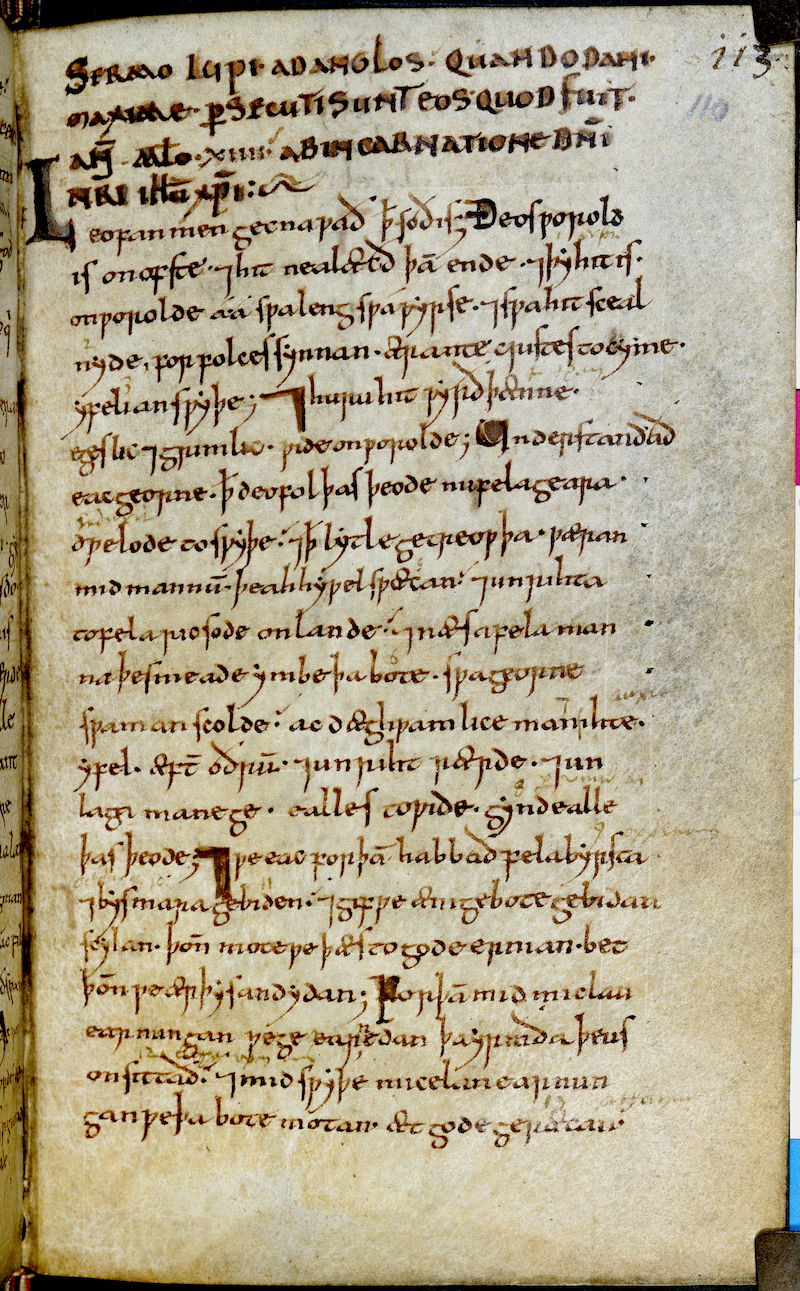 SERMO LUPI· AD ANGLOS· QUANDO DANI·
MAXIME· P̲SECUTI SUNT EOS· QUOD FUIT·
AÑ· M̄LO· XIIII· AB INCARNATIONE DÑI
NRI IHŪ XP̄I:
113
110
Leofan men gecnaƿað ꝥ soð is; Ðeos ƿorold
is on ofste· ⁊ hit nealæcð þā ende· ⁊ þẏ hit is·
on ƿorolde aa sƿa leng sƿa ƿẏrse· ⁊ sƿa hit sceal
nẏde· for folces sẏnnan· ær antecristes tocẏme·
ẏfelian sƿẏþe; ⁊ huru hit ƿẏrð þænne·
egeslic ⁊ grimlic· ƿide on ƿorolde; Understandað
eac georne· ꝥ deofol þas þeode nu fela geara·
dƿelode to sƿẏþe· ⁊ ꝥ lẏtle getreoƿþa· ƿæran
mid mannū· þeah hẏ ƿel spæcan· ⁊ unrihta
to fela ricsode on lande· ⁊ næs a fela man
na þe smeade ẏmbe þa bote· sƿa georne
sƿa man scolde· ac dæghƿamlice man ihte·
ẏfel· æft̄ oðrū· ⁊ unriht rærde· ⁊ un
laga manege· ealles to ƿide· gẏnd ealle
þas þeode; ⁊ ƿe eac for þā habbað fela bẏrsta
⁊ bẏsmara gebiden· ⁊ gif ƿe ænige bote gebidan
scẏlan· þoñ mote ƿe þæs to gode ernian· bet
þoñ ƿe ær þẏsan dẏdan; Forþā mid miclan
earnungan ƿe geearnedan þa ẏrmða þe us
onsittað· ⁊ mid sƿẏþe micelan earnun
gan ƿe þa bote motan· æt gode geræcan·